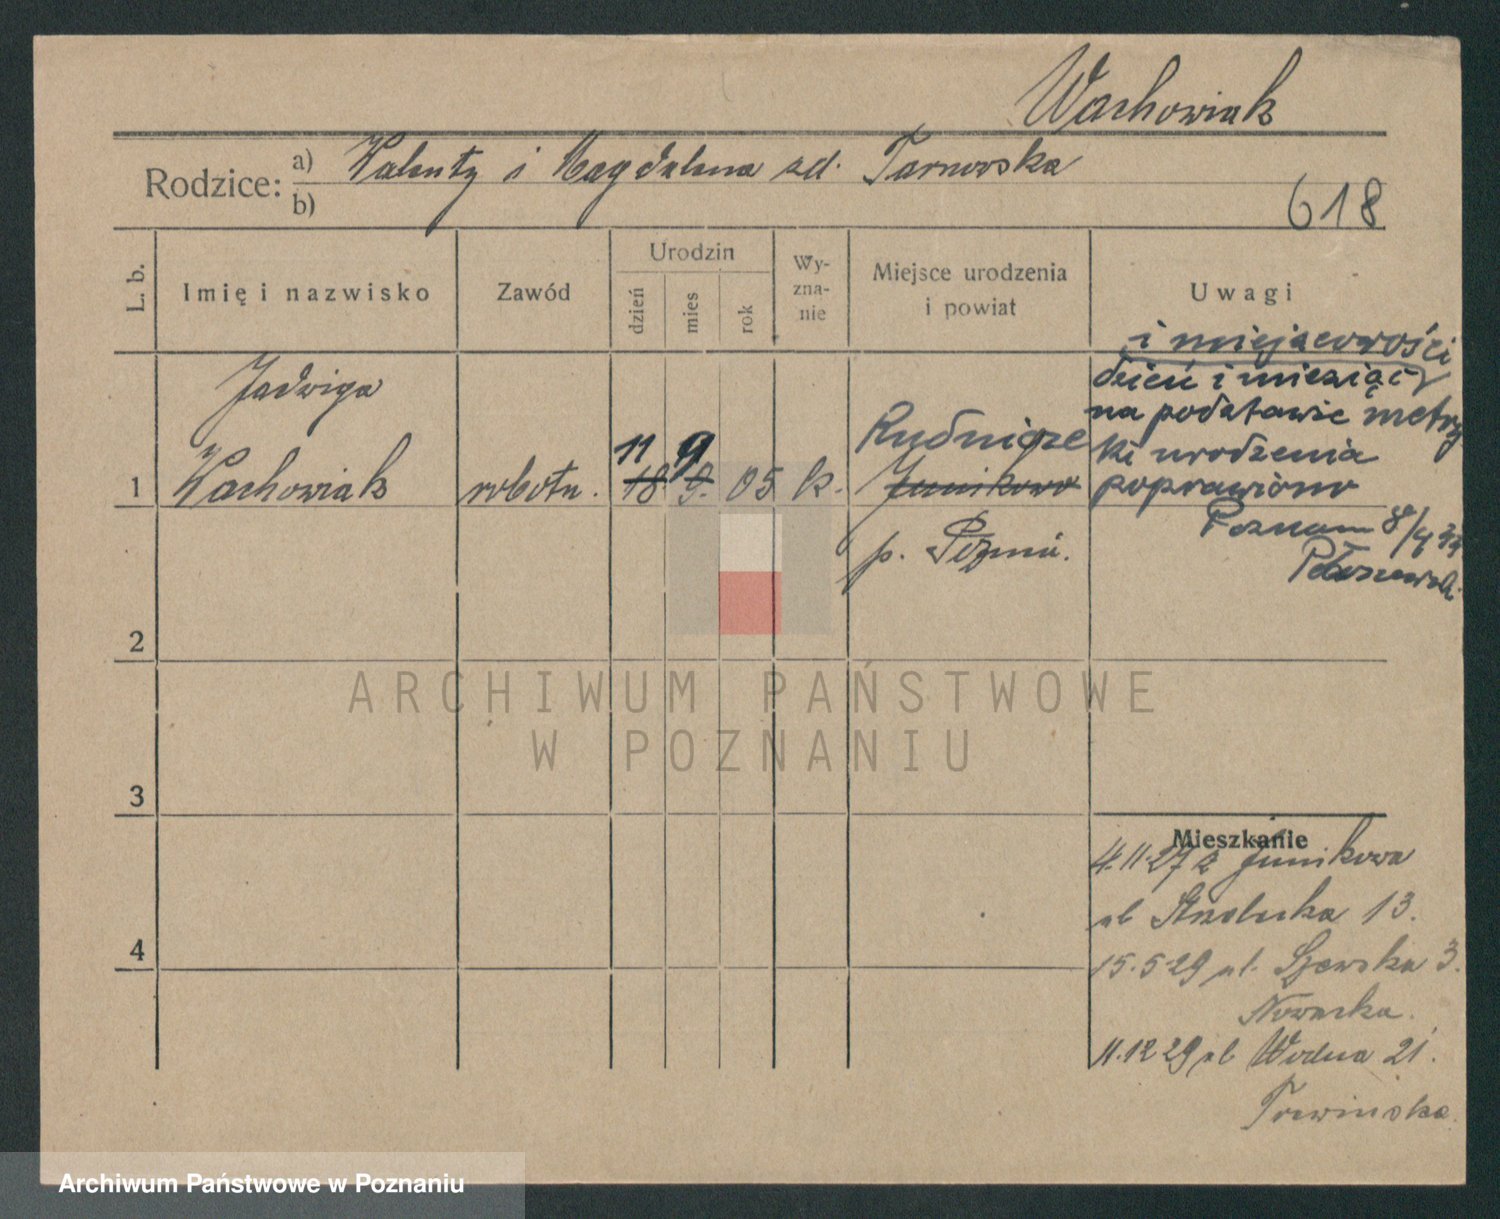 Wachowiak
Rodzice: a) Walenty i Magdalena zd. Tarnowska
b)
618
L. b.
Imię i nazwisko
Zawód
Urodzin
dzień
mies
rok
Wy-
zna-
nie
Miejsce urodzenia
i powiat
Uwagi
i miejscowości
dzień i miesiąc
na podstawie metry
ki urodzenia
poprawiono
Poznań 8/4 33
Jadwiga
11 9 Rudnicze
1 Wachowiak robotn. 18 9. 05 k. Junikowo
p. Pozna.
2
ARCHIWUM PAŃSTWOWE
W POZNANIU
3
Mieszkanie
4.11.27 z Junikowa
ul Strzelecka 13.
4
15.5 29 ul. Szewska 3.
Nowacka.
11.12 29 ul Wodna 21.
Archiwum Państwowe w Poznaniu